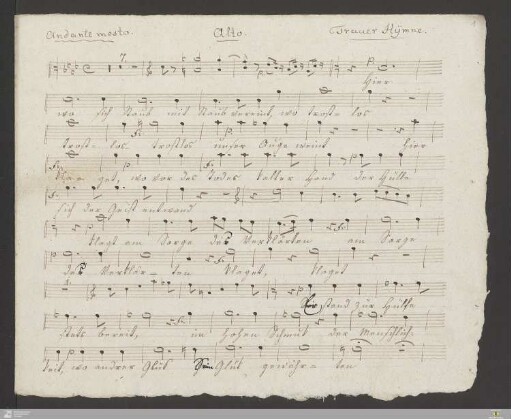 Andante mesto. Alto. Trauer Hÿmne.
7.
Hier
wo sich Staub mit Staub vereint, wo trost= los
trost= los trostlos unser Auge weint Hier
Kla= get, wo vor des Todes kalter Hand der Hülle
sich der Geist entwand
klagt am Sarge des Verklärten am Sarge
des Verklär= ten klaget, klaget
Er stand zur Hülfe
stets bereit, im hohen Schmuck der Menschlich=
keit, wo andrer Glük Sein Glük gewährte= ten